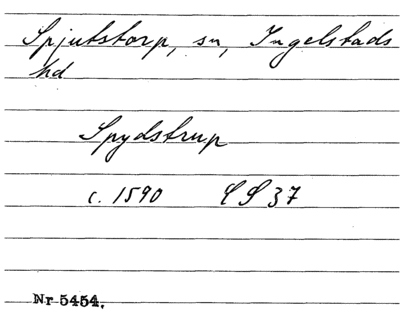 Spjutstorp, sn, Ingelstads
hd
Spydstrup
c. 1590 CS 37
Nr 5454.